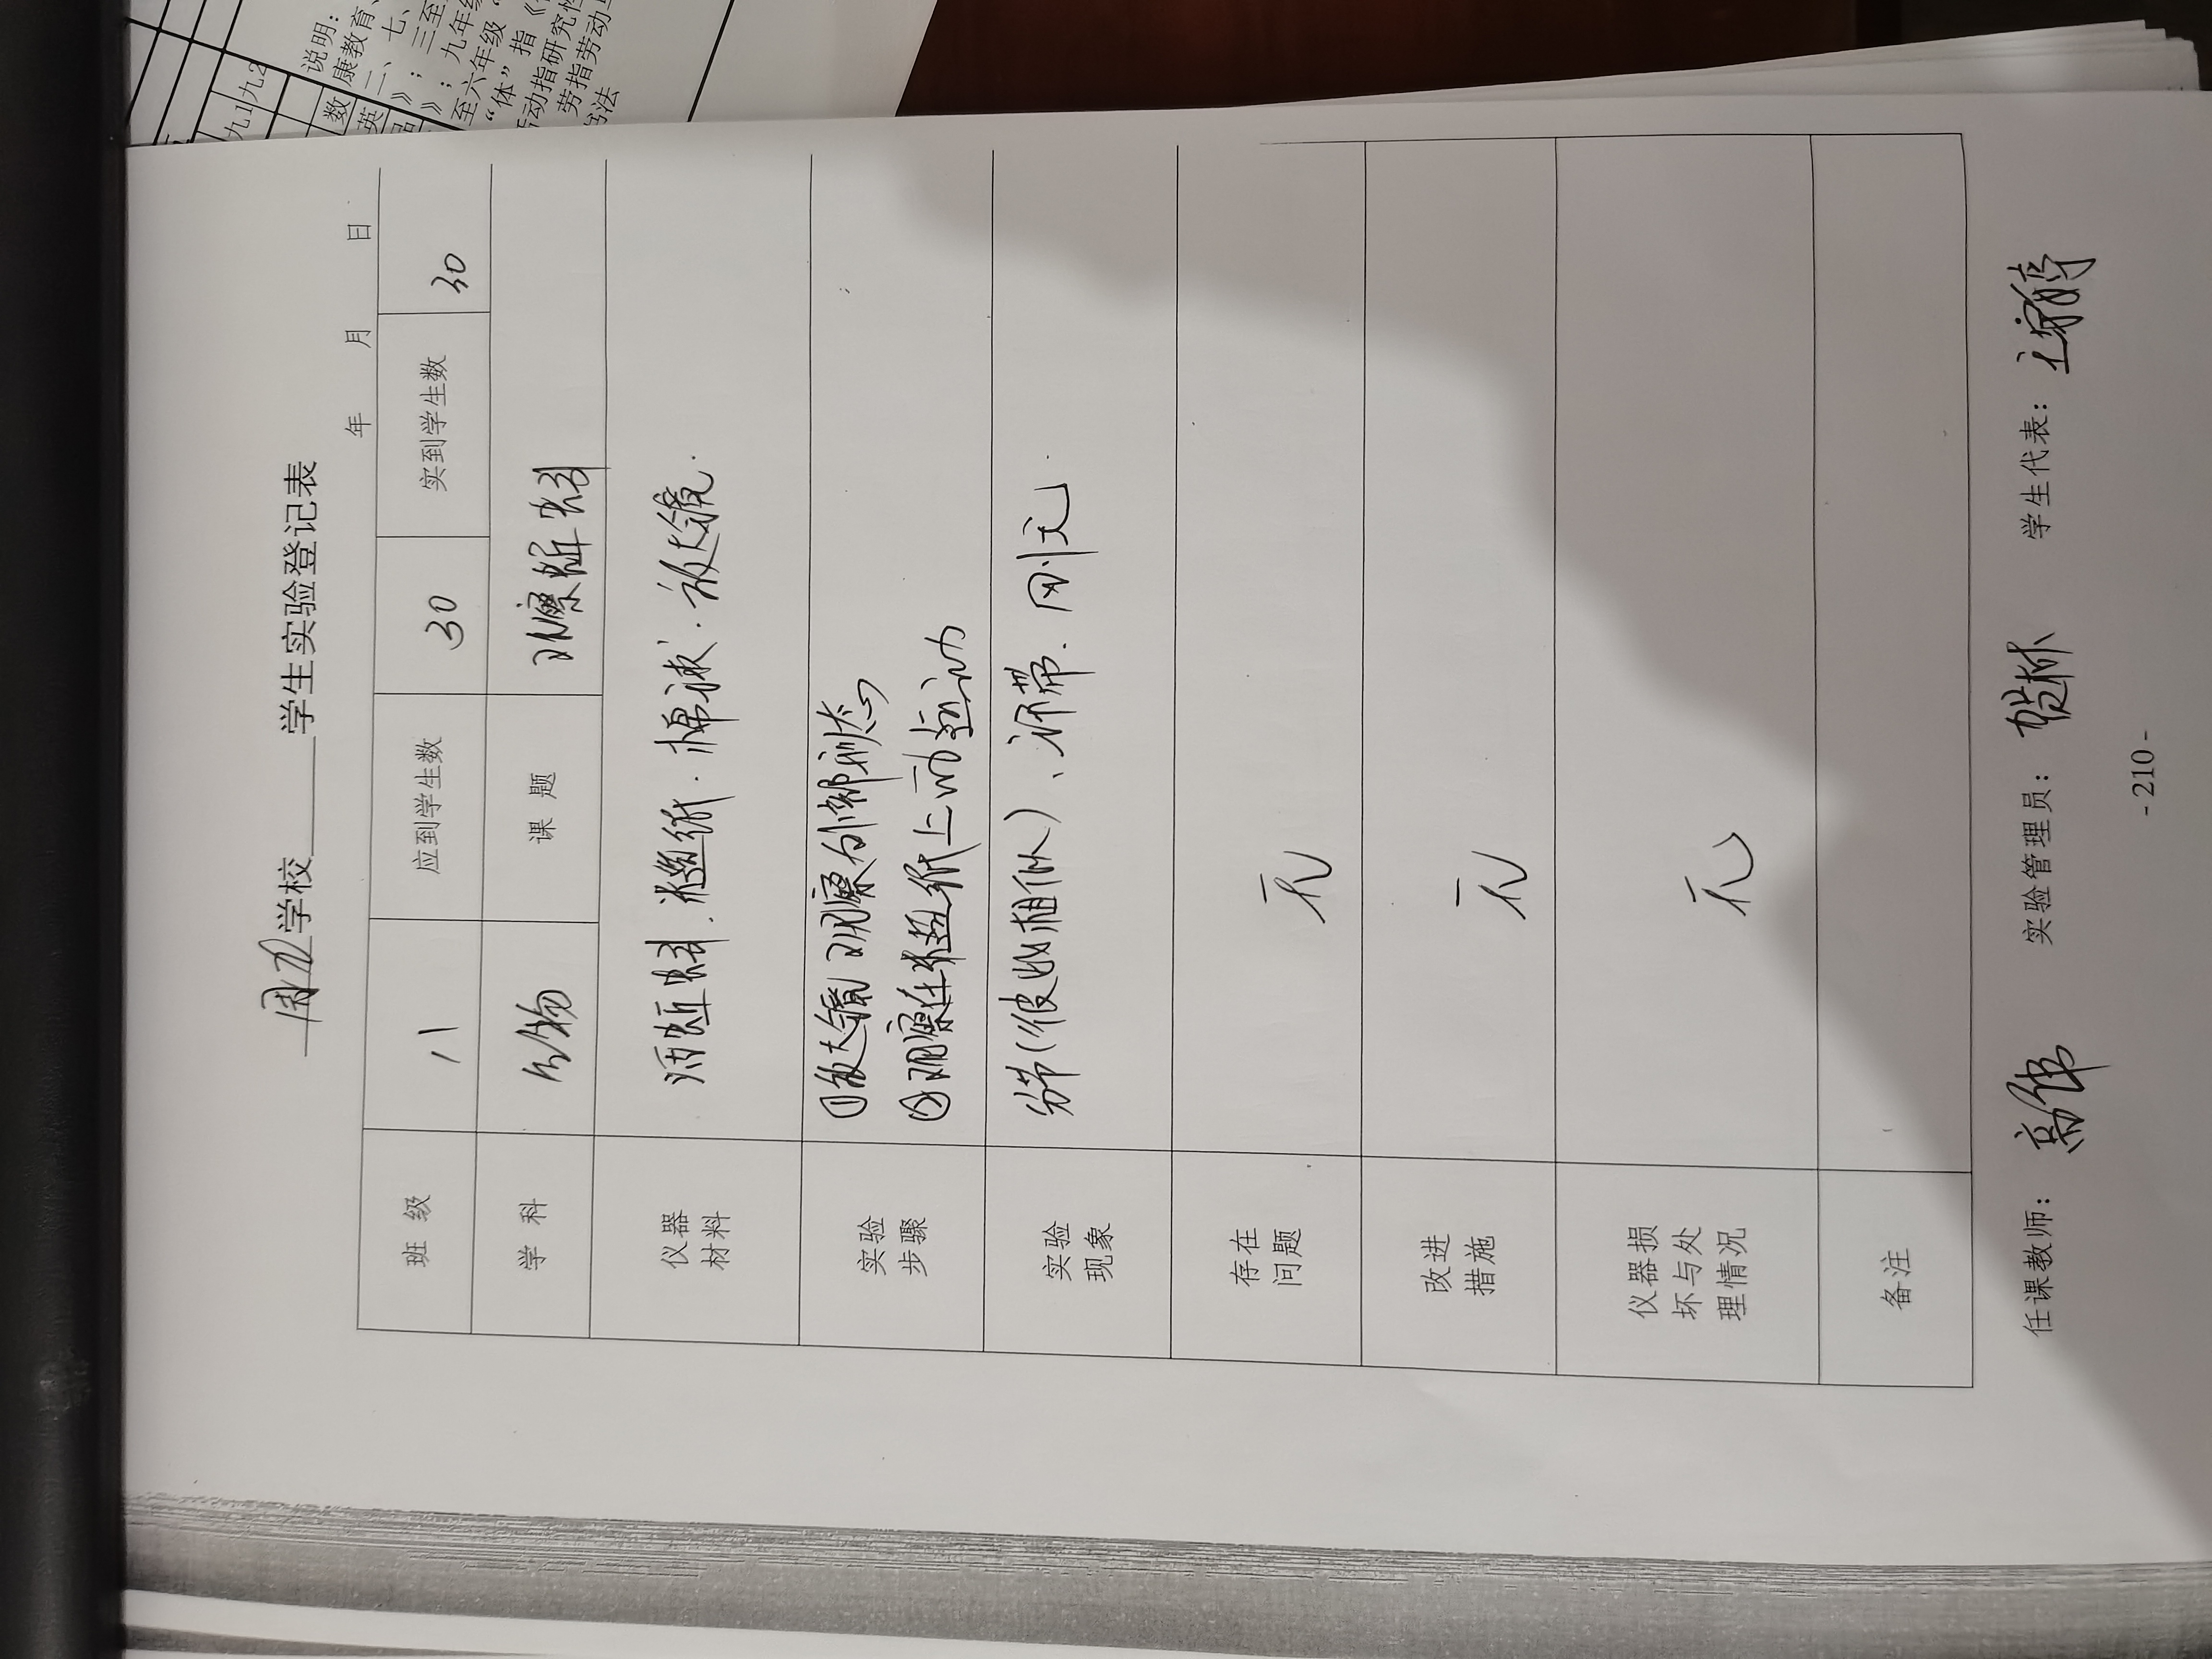 学校______学生实验登记表
年 月 日
班 级 八 应到学生数 30 实到学生数 30
学 科 生物 课 题 观察蚯蚓
仪器
材料 活蚯蚓．糙纸．棉球．放大镜．
实验
步骤 ①放大镜观察外部形状
②观察在糙纸上而动运动
实验
现象 分节(彼此相似)、环带．刚毛．
存在
问题 无
改进
措施 无
仪器损
坏与处
理情况 无
备注
任课教师： 实验管理员： 学生代表：
- 210 -
九1 九2
数
英
说明：
康教育、
二、七、
》；三至
》；九年级
至六年级
“体”指《
动指研究性
劳指劳动
书法